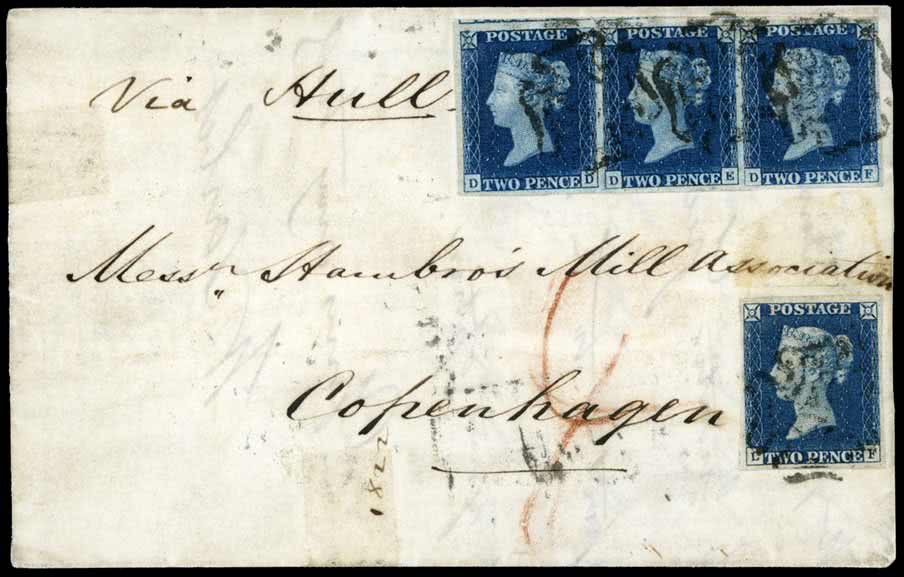 POSTAGE POSTAGE POSTAGE
D TWO PENCE D D TWO PENCE E D TWO PENCE F
Via Hull.
Messrs Hambro's Mill Association
POSTAGE
TWO PENCE F
Copenhagen
182